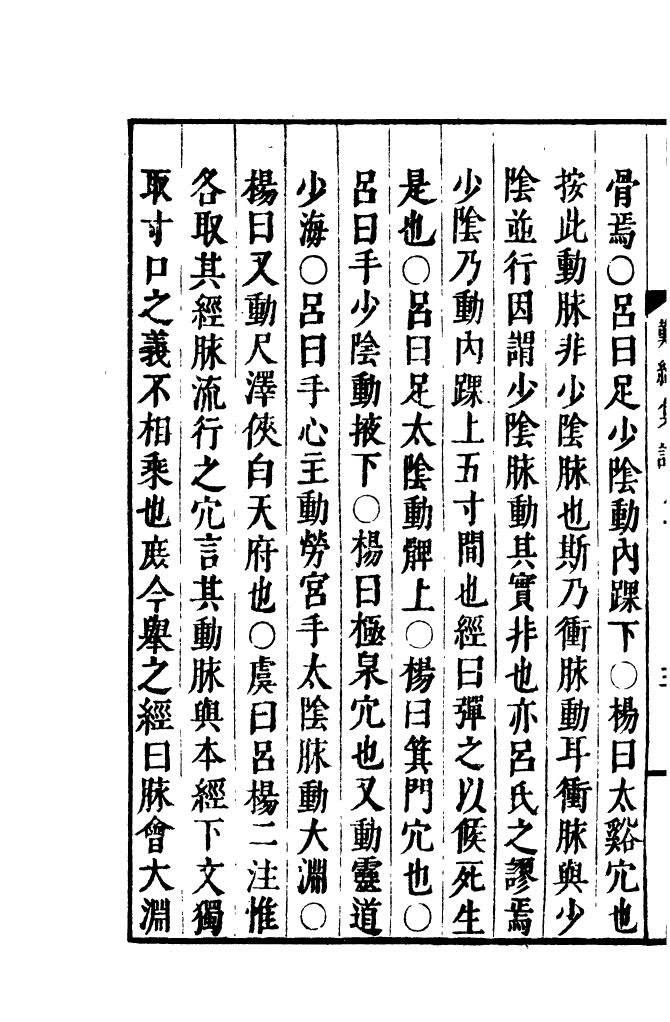 難經集註
三
骨焉〇呂曰足少陰動內踝下〇楊曰太谿穴也
按此動脉非少陰脉也斯乃衝脉動耳衝脉與少
陰並行因謂少陰脉動其實非也亦呂氏之謬焉
少陰乃動內踝上五寸間也經曰彈之以候死生
是也〇呂曰足太陰動髀上〇楊曰箕門穴也〇
呂曰手少陰動掖下〇楊曰極泉穴也又動靈道
少海〇呂曰手心主動勞宮手太陰脉動大淵〇
楊曰又動尺澤俠白天府也〇虞曰呂楊二注惟
各取其經脉流行之穴言其動脉與本經下文獨
取寸口之義不相乘也庶今舉之經曰脉會大淵